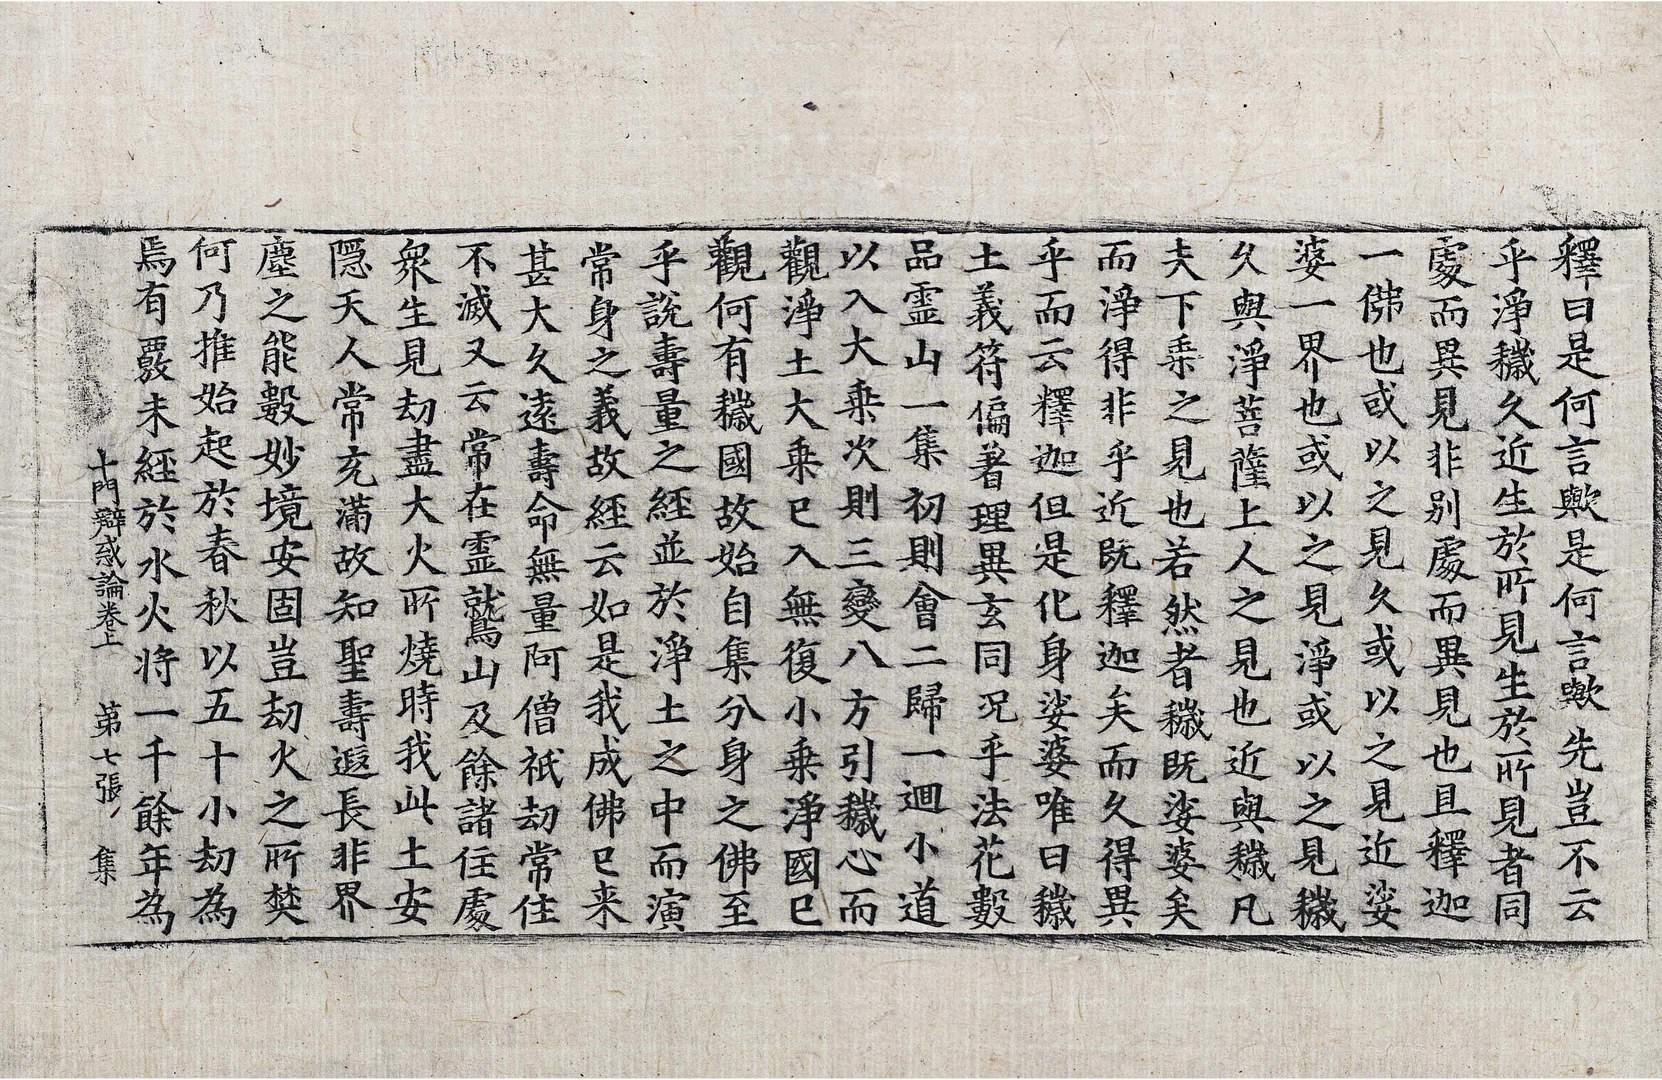 釋曰是何言歟是何言歟先豈不云
乎淨穢久近生於所見生於所見者同
處而異見非別處而異見也且釋迦
一佛也或以之見久或以之見近娑
婆一界也或以之見淨或以之見穢
久與淨菩薩上人之見也近與穢凡
夫下乗之見也若然者穢既娑婆矣
而淨得非乎近既釋迦矣而久得異
乎而云釋迦但是化身娑婆唯曰穢
土義符偏著理異玄同況乎法花數
品靈山一集初則會二歸一迴小道
以入大乗次則三變八方引穢心而
觀淨土大乗已入無復小乗淨國已
觀何有穢國故始自集分身之佛至
乎說壽量之經並於淨土之中而演
常身之義故經云如是我成佛已来
甚大久遠壽命無量阿僧祇劫常住
不滅又云常在靈鷲山及餘諸住處
衆生見劫盡大火所燒時我此土安
隱天人常充滿故知聖壽遐長非界
塵之能數妙境安固豈劫火之所焚
何乃推始起於春秋以五十小劫為
焉有覈未經於水火将一千餘年為
十門辯惑論卷上　第七張　集